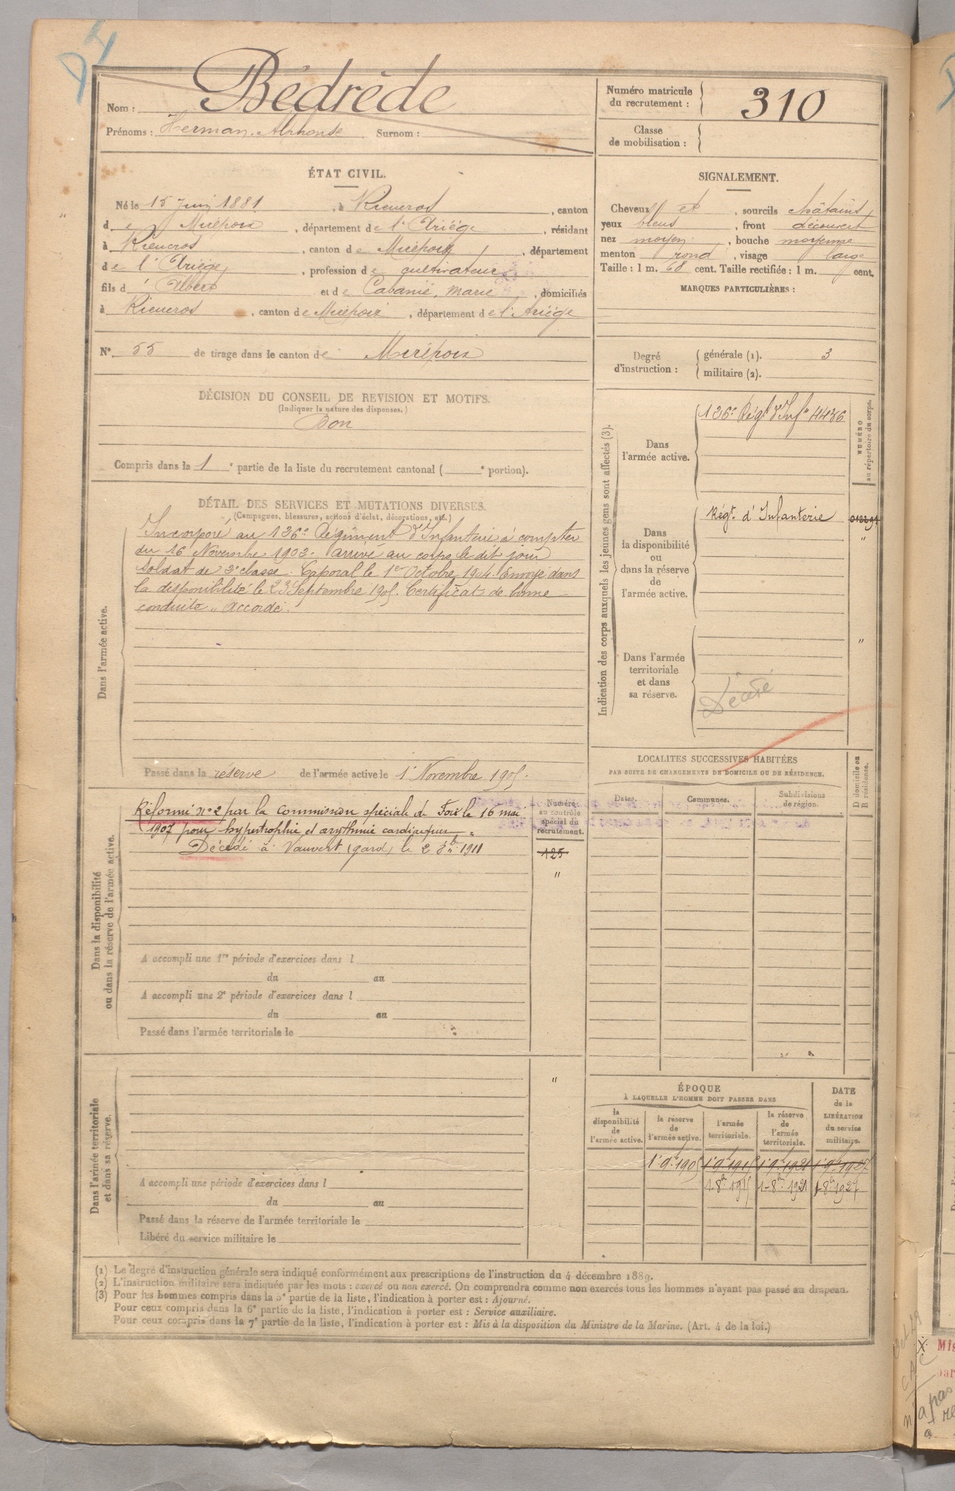 Nom : Bédrède
Prénoms : Herman, Alphonse Surnom :
Numéro matricule du recrutement : 310
Classe de mobilisation :
ÉTAT CIVIL.
Né le 15 Juin 1881, à Rieucros, canton
de Mirepoix, département de l'Ariège, résidant
à Rieucros, canton de Mirepoix, département
de l'Ariège, profession de cultivateur
fils d' Albert et de Cabanié, Marie, domiciliés
à Rieucros, canton de Mirepoix, département de l'Ariège
N° 55 de tirage dans le canton de Mirepoix
SIGNALEMENT.
Cheveux et, sourcils châtains
yeux bleus, front découvert
nez moyen, bouche moyenne
menton rond, visage large
Taille : 1 m. 68 cent. Taille rectifiée : 1 m. cent.
MARQUES PARTICULIÈRES :
Degré d'instruction : générale (1). 3
militaire (2).
DÉCISION DU CONSEIL DE REVISION ET MOTIFS.
(Indiquer la nature des dispenses.)
Bon
Compris dans la 1e partie de la liste du recrutement cantonal ( e portion).
DÉTAIL DES SERVICES ET MUTATIONS DIVERSES.
(Campagnes, blessures, actions d'éclat, décorations, etc.)
Dans l'armée active.
Incorporé au 126e Régiment d'Infanterie à compter
du 16 Novembre 1902. Arrivé au corps le dit jour
soldat de 2e classe. Caporal le 1er Octobre 1904. Envoyé dans
la disponibilité le 23 Septembre 1905. Certificat de bonne
conduite " Accordé.
Passé dans la réserve de l'armée active le 1 Novembre 1905.
Indication des corps auxquels les jeunes gens sont affectés (3).
NUMÉRO au répertoire du corps.
Dans l'armée active. 126e Régt d'Infie 4436
Dans la disponibilité ou dans la réserve de l'armée active. Régt. d'Infanterie
"
Dans l'armée territoriale et dans sa réserve. Décédé
"
Dans la disponibilité ou dans la réserve de l'armée active.
Réformé n° 2 par la commission spéciale de Foix le 16 mai
1907 pour hypertrophie et arythmie cardiaques.
Décédé à Vauvert (Gard) le 2 1911
Numéro au contrôle spécial du recrutement.
125
"
A accompli une 1re période d'exercices dans l
du au
A accompli une 2e période d'exercices dans l
du au
Passé dans l'armée territoriale le
LOCALITÉS SUCCESSIVES HABITÉES
PAR SUITE DE CHANGEMENTS DE DOMICILE OU DE RÉSIDENCE.
Dates. Communes. Subdivisions de région. D domicile ou R résidence.
Dans l'armée territoriale et dans sa réserve.
"
A accompli une période d'exercices dans l
du au
Passé dans la réserve de l'armée territoriale le
Libéré du service militaire le
ÉPOQUE
À LAQUELLE L'HOMME DOIT PASSER DANS
la disponibilité de l'armée active. la réserve de l'armée active. l'armée territoriale. la réserve de l'armée territoriale. DATE de la LIBÉRATION du service militaire.
1 9bre 1905 1 9bre 1915 1 9bre 1921 1 9bre 1927
1-8bre 1915 1-8bre 1921 1-8bre 1927
(1) Le degré d'instruction générale sera indiqué conformément aux prescriptions de l'instruction du 4 décembre 1889.
(2) L'instruction militaire sera indiquée par les mots : exercé ou non exercé. On comprendra comme non exercés tous les hommes n'ayant pas passé au drapeau.
(3) Pour les hommes compris dans la 5e partie de la liste, l'indication à porter est : Ajourné.
Pour ceux compris dans la 6e partie de la liste, l'indication à porter est : Service auxiliaire.
Pour ceux compris dans la 7e partie de la liste, l'indication à porter est : Mis à la disposition du Ministre de la Marine. (Art. 4 de la loi.)